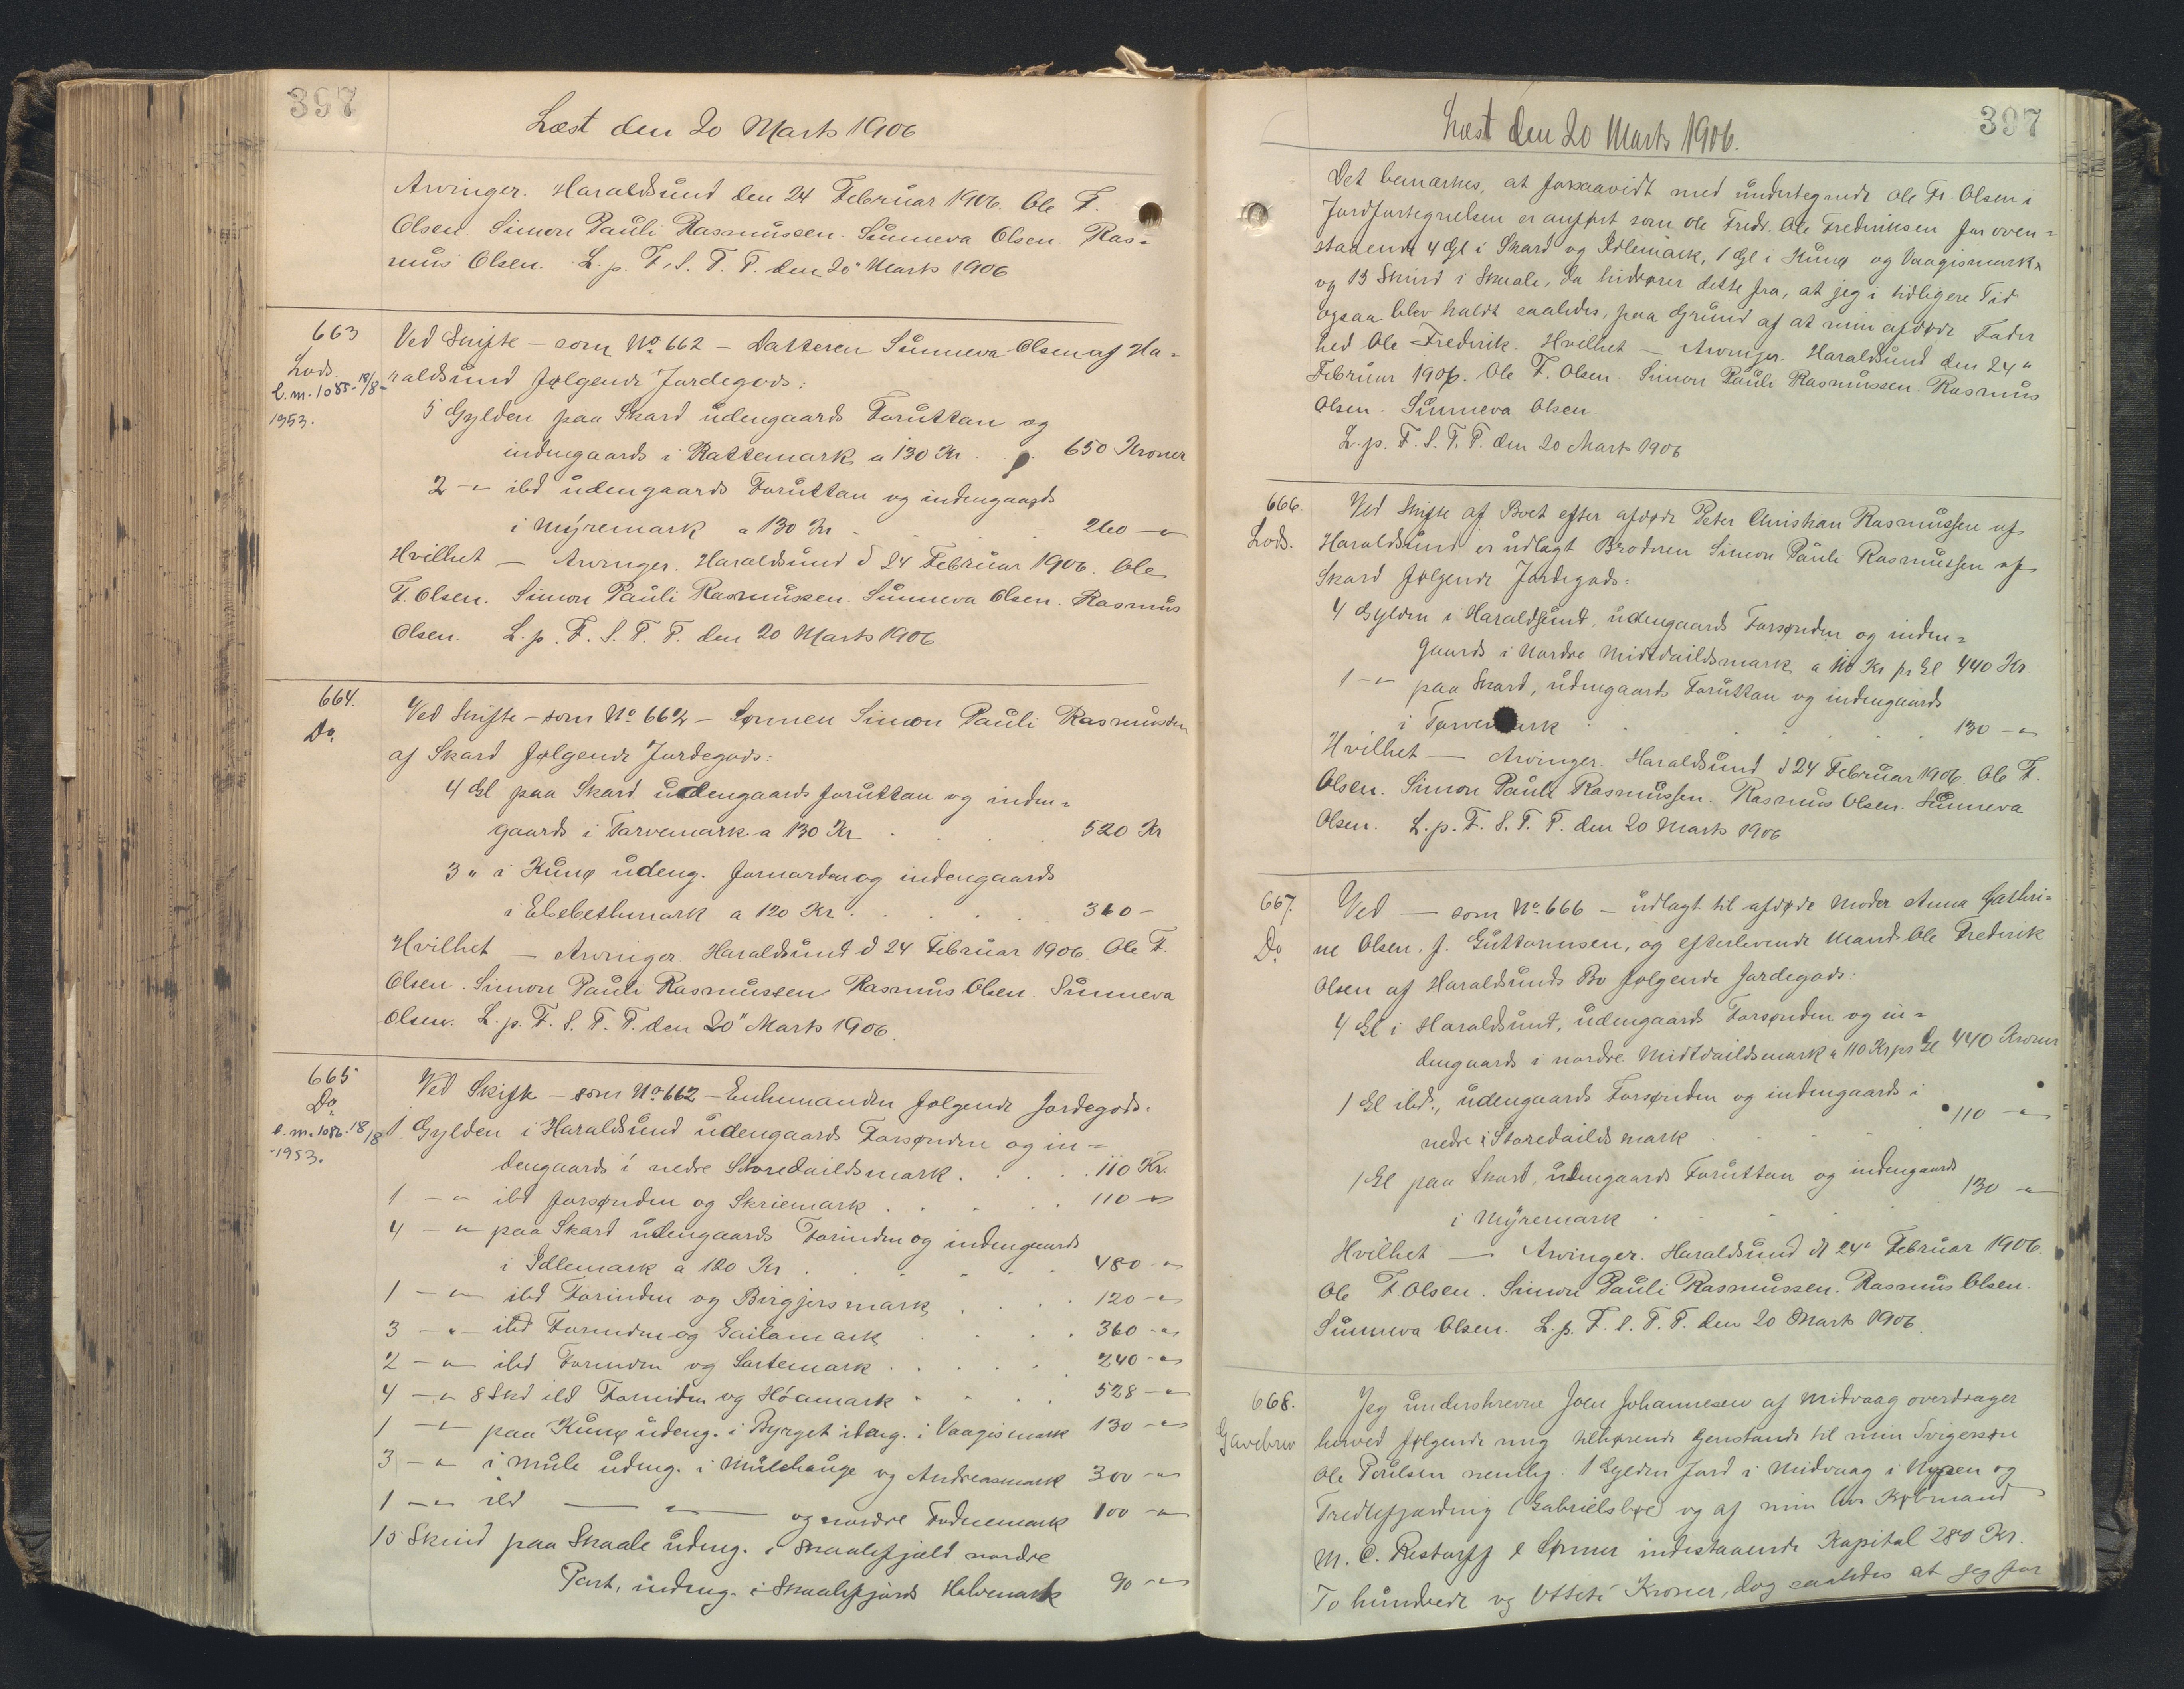 397
Læst den 20 Marts 1906
Arvinger. Haraldsund den 24 Februar 1906. Ole F.
Olsen. Simon Pauli Rasmussen. Sunneva Olsen. Ras-
mus Olsen. L. p. F. S. T. T. den 20 Marts 1906
663
Lods.
l.m. 1085-18/8-
1953.
Ved Skifte – som No 662 – Datteren Sunneva Olsen af Ha-
raldsund følgende Jordegods:
5 Gylden paa Skard udengaards Foruttan og
indengaards i Rattemark a 130 Kr. . . 650 Kroner
2 -"- ibd udengaards Foruttan og indengaards
i Myremark a 130 Kr . . . 260 -"-
Hvilket — Arvinger. Haraldsund d 24 Februar 1906. Ole
F. Olsen. Simon Pauli Rasmussen. Sunneva Olsen. Rasmus
Olsen. L. p. F. S. T. T. den 20 Marts 1906
664.
Do.
Ved Skifte – som No 662 – Sønnen Simon Pauli Rasmussen
af Skard følgende Jordegods:
4 Gl paa Skard udengaards foruttan og inden-
gaards i Tarvemark a 130 Kr . . . 520 Kr
3 " i Kunø udeng. fornorden og indengaards
i Elsebethmark a 120 Kr . . . 360 -
Hvilket — Arvinger. Haraldsund d 24 Februar 1906. Ole F.
Olsen. Simon Pauli Rasmussen Rasmus Olsen. Sunneva
Olsen. L. p. F. S. T. T. den 20" Marts 1906.
665
Do.
l.m. 1086. 18/8
-1953.
Ved Skifte – som No 662 – Enkemanden følgende Jordegods:
1 Gylden i Haraldsund udengaards Forsønden og in-
dengaards i nedre Storedaildsmark . . . 110 Kr.
1 -"- ibd forsønden og Skriemark . . . 110 -"-
4 -"- paa Skard udengaards Forinden og indengaards
i Idlemark a 120 Kr . . . 480 -"-
1 -"- ibd Forinden og Birgjersmark . . . 120 -"-
3 -"- ibd Forinden og Gailamark . . . 360 -"-
2 -"- ibd Forinden og Sortemark . . . 240 -"-
4 -"- 8 Skd ibd Forinden og Hóamark . . . 528 -"-
1 -"- paa Kunø udeng. i Byrget ideng. i Vaagismark 130 -"-
3 -"- i Mule udeng. i Mulehauge og Andreasmark 300 -"-
1 -"- ibd — " — og nordre Fudnemark 100 -"-
15 Skind paa Skaale udeng. i Skaalefjeld nordre
Part, indeng. i Skaalefjords Halvemark 90 -"-
397
Læst den 20 Marts 1906.
Det bemærkes, at forsaavidt med undertegnede Ole Fr. Olsen i
Jordfortegnelsen er anført som Ole Fredr. Ole Frederiksen for oven-
staaende 4 Gl i Skard og Idlemark, 1 Gl i Kunø og Vaagismark
og 15 Skind i Skaale, da hidrører dette fra, at jeg i tidligere Tid
ogsaa blev kaldt saaledes, paa Grund af at min afdøde Fader
hed Ole Frederik. Hvilket — Arvinger. Haraldsund den 24"
Februar 1906. Ole F. Olsen. Simon Pauli Rasmussen. Rasmus
Olsen. Sunneva Olsen.
L. p. F. S. T. T. den 20 Marts 1906
666.
Lods.
Ved Skifte af Boet efter afdøde Peter Christian Rasmussen af
Haraldsund er udlagt Broderen Simon Pauli Rasmussen af
Skard følgende Jordegods:
4 Gylden i Haraldsund, udengaards Forsønden og inden-
gaards i Nordre Midtdaildsmark a 110 Kr pr Gl 440 Kr.
1 -"- paa Skard, udengaards Foruttan og indengaards
i Tarvemark . . . 130 -"-
Hvilket — Arvinger. Haraldsund d 24 Februar 1906. Ole F.
Olsen. Simon Pauli Rasmussen. Rasmus Olsen. Sunneva
Olsen. L. p. F. S. T. T. den 20 Marts 1906
667.
Do
Ved — som No 666 – udlagt til afdøde Moder Anna Cathri-
ne Olsen, f. Guttormsen, og efterlevende Mand Ole Frederik
Olsen af Haraldsunds Bo følgende Jordegods:
4 Gl i Haraldsund, udengaards Forsønden og in-
dengaards i nordre Midtdaildsmark a 110 Kr pr Gl 440 Kroner
1 Gl ibd., udengaards Forsønden og indengaards i
nedre i Storedailds mark . . . 110 -"-
1 Gl paa Skard, udengaards Foruttan og indengaards
i Myremark . . . 130 -"-
Hvilket — Arvinger. Haraldsund d 24" Februar 1906.
Ole F. Olsen. Simon Pauli Rasmussen. Rasmus Olsen.
Sunneva Olsen. L. p. F. S. T. T. den 20 Marts 1906.
668.
Gavebrev
Jeg underskrevne Joen Johannesen af Midvaag overdrager
herved følgende mig tilhørende Genstande til min Svigersøn
Ole Poulsen nemlig: 1 Gylden Jord i Midvaag i og
Tredlefjærding (Gabrielsbøe) og af min hos Købmand
M. C. Restorff & Sønner indestaaende Kapital 280 Kr.
To hundrede og Otteti Kroner, dog saaledes at jeg for